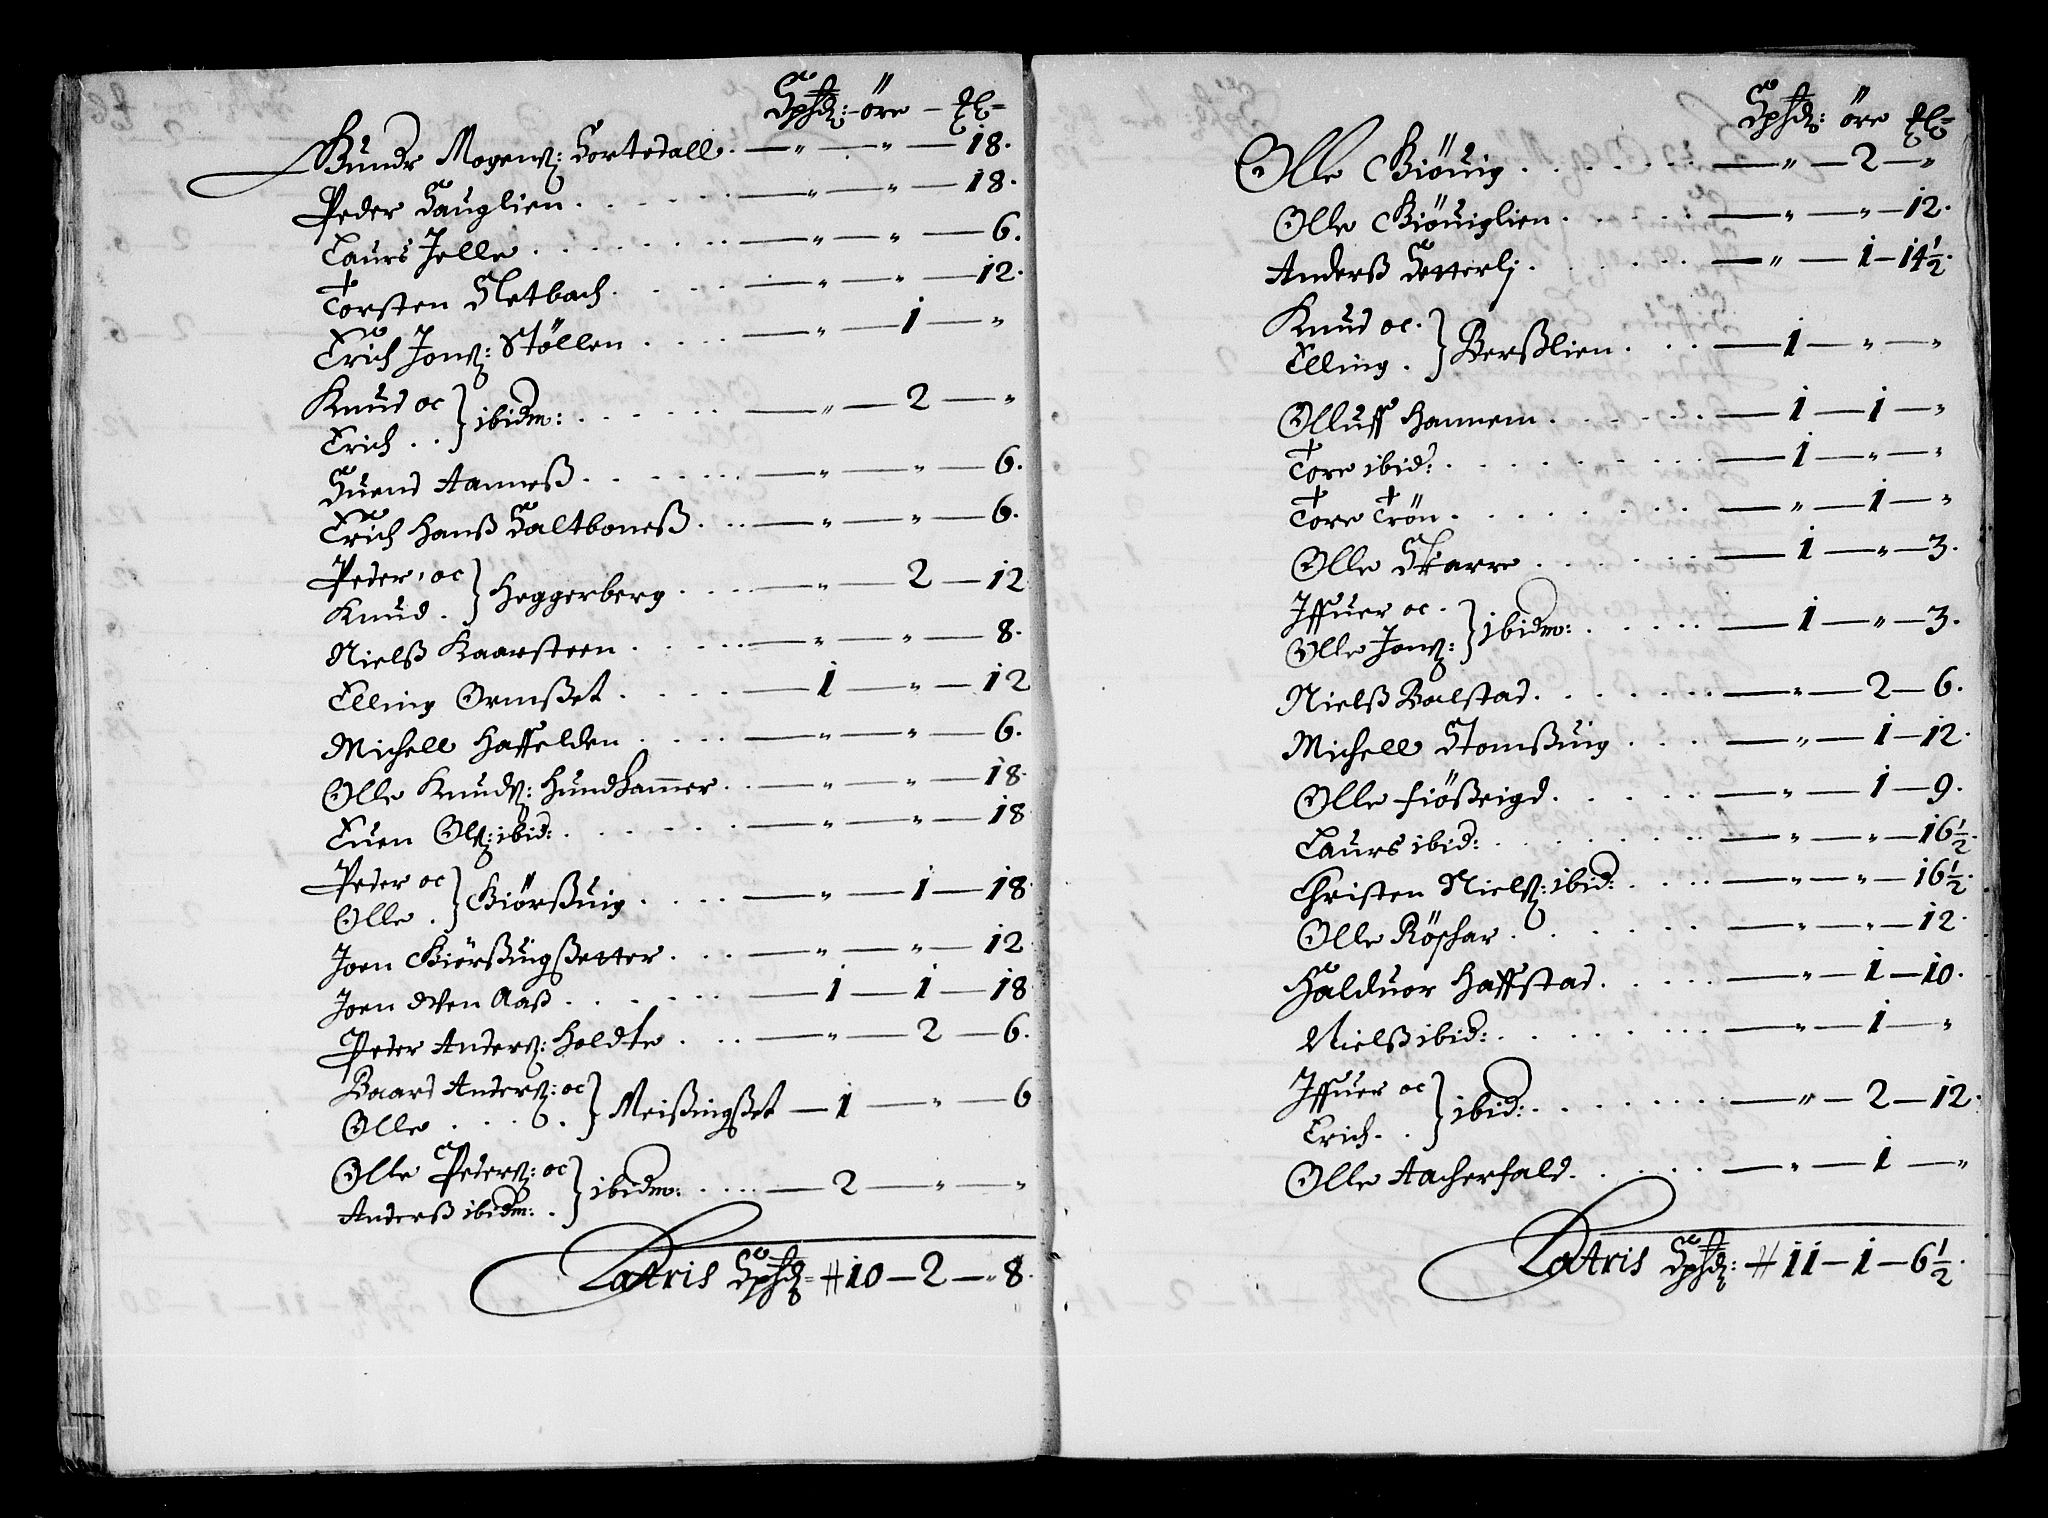 Spdꝝ: öre – ℔
Gundr Mogenß: Sortedall . — „ — „ — 18.
Peder Hauglien . . . . . — „ — „ — 18.
Laurs Jelle . . . . . . — „ — „ — 6.
Torsten Sletbach . . . . — „ — „ — 12.
Erich Jonß: Stöllen . . . . — „ — 1 — „
Knud oc
Erich . . } ibidm: . . . . . — „ — 2 — „
Suend Aanneß . . . . . — „ — „ — 6.
Erich Hanß Saltboneß . . . — „ — „ — 6.
Peder, oc
Knud . } Heggerberg . . . . — „ — 2 — 12
Nielß Kaarsteen . . . . . — „ — „ — 8.
Elling Ormßet . . . . — 1 — „ — 12
Michell Haffelden . . . . — „ — „ — 6.
Olle Knudß: Hundhammer . . — „ — „ — 18.
Euen Olß: ibid: . . . . . — „ — „ — 18
Peder oc
Olle . } Giörßuig . . . . — „ — 1 — 18
Joen Giörßuigßetter . . . — „ — „ — 12
Joen Offven Aaß . . . . . — 1 — 1 — 18
Peder Anderß: Holdte . . . — „ — 2 — 6.
Baard Anderß: oc
Olle . . . . } Meißingßet — 1 — „ — 6
Olle Pederß: oc
Anderß ibidm: . } ibidm: . . . — 2 — „ — „
Latris Spdꝝ: # 10 – 2 – „ 8.
Spdꝝ: öre ℔
Olle Giöuig . . . . . — „ — 2 — „
Olle Giöuiglien . . . . . — „ — „ — 12.
Anderß Setterlj . . . . . — „ — 1 – 14½.
Knud oc.
Elling . } Berßlien . . . — 1 — „ — „
Olluff Hannem . . . . . — 1 — 1 — „
Tore ibid: . . . . . . — 1 — „ — „
Tore Trön . . . . . . — „ — 1 — „
Olle Skarre . . . . . — 1 — „ — 3.
Iffuer oc .
Olle Jonß: } Ibidm: . . . . — 1 — „ — 3.
Nielß Balstad . . . . . — „ — 2 — 6.
Michell Stomßuig . . . . — „ — 1 — 12.
Olle Fiößeigd . . . . . — „ — 1 — 9.
Laurs ibid: . . . . . . — „ — „ — 16½.
Christen Nielß: ibid: . . . — „ — „ — 16½.
Olle Röphar . . . . . — „ — „ — 12.
Halduor Haffstad . . . . — „ — 1 — 10.
Nielß ibid: . . . . . — „ — 1 — „
Iffuer oc
Erich . . } ibid: . . . . . — „ — 2 — 12.
Olle Aacherfald . . . . . — „ — 1 — „
Latris Spdꝝ: # 11 – 1 – 6½.